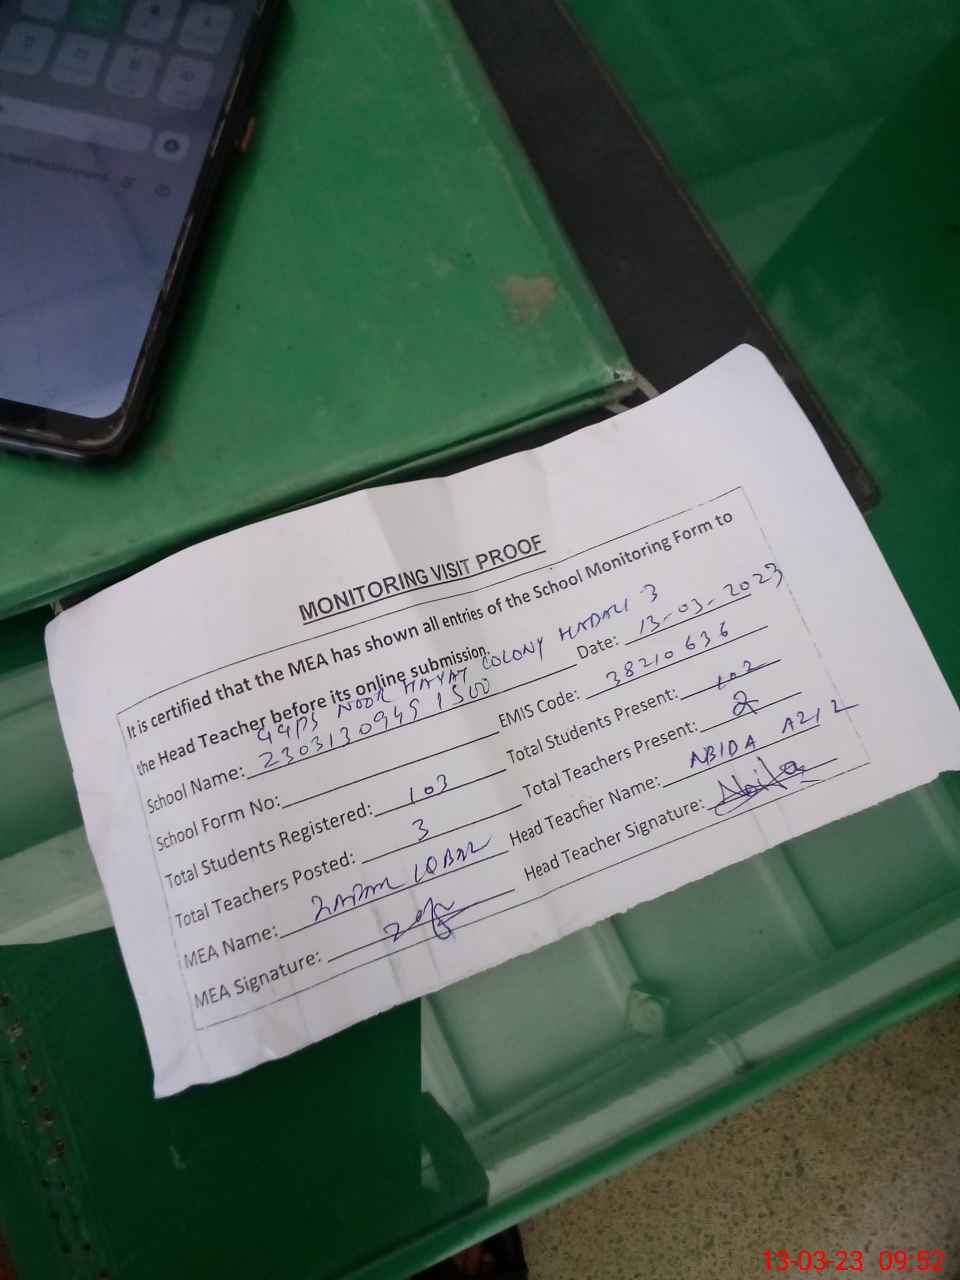 MONITORING VISIT PROOF
It is certified that the MEA has shown all entries of the School Monitoring Form to
the Head Teacher before its online submission.
School Name: GGPS NOOR HAYAT COLONY HADALI 3 Date: 13-03-2023
School Form No: 230313094951500 EMIS Code: 38210636
Total Students Registered: 103 Total Students Present: 102
Total Teachers Posted: 3 Total Teachers Present: 2
MEA Name: IQBAL Head Teacher Name: AZIZ
MEA Signature: Head Teacher Signature:
13-03-23 09:52